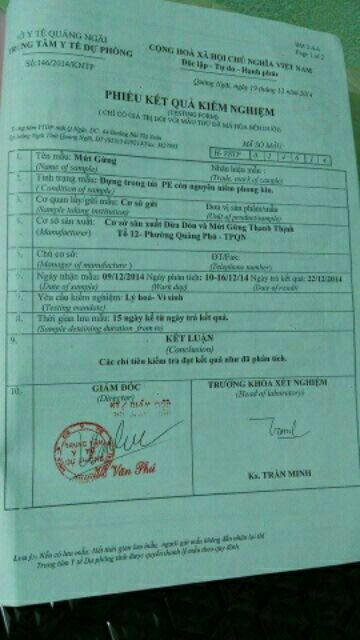 SỞ Y TẾ QUẢNG NGÃI
TRUNG TÂM Y TẾ DỰ PHÒNG
Số:146/2014/KNTP
BM 5.4.6
Page 1 of 2
CỘNG HOÀ XÃ HỘI CHỦ NGHĨA VIỆT NAM
Độc lập - Tự do - Hạnh phúc
Quảng Ngãi, ngày 19 tháng 12 năm 2014
PHIẾU KẾT QUẢ KIỂM NGHIỆM
(TESTING FORM)
( CHỈ CÓ GIÁ TRỊ ĐỐI VỚI MẪU THỬ ĐÃ MÃ HÓA BÊN DƯỚI)
MÃ SỐ MẪU:
1. Tên mẫu: Mứt Gừng
(Name of sample)
Nhãn hiệu mẫu:
(Trade, mark of sample)
2. Tình trạng mẫu: Đựng trong túi PE còn nguyên niêm phong kín.
( Condition of sample)
3. Cơ quan lấy/gửi mẫu: Cơ sở gửi
(Sample taking institution)
Đơn vị sản phẩm/mẫu
(Unit of product/sample)
Cơ sở sản xuất: Cơ sở sản xuất Dừa Dón và Mứt Gừng Thanh Thịnh
(Manufacturer) Tổ 12- Phường Quảng Phú - TPQN
Chủ cơ sở:
(Manager of manufacture )
ĐT/Fax:
(Telephone number)
Ngày nhận mẫu: 09/12/2014 Ngày phân tích: 10-16/12/14 Ngày trả kết quả: 22/12/2014
(Date of sample) (Work day) (Date of result)
Yêu cầu kiểm nghiệm: Lý hoá- Vi sinh
(Testing mandate)
8. Thời gian lưu mẫu: 15 ngày kể từ ngày trả kết quả.
(Sample detaining duration from to)
9. KẾT LUẬN
(Conclusion)
Các chỉ tiêu kiểm tra đạt kết quả như đã phân tích.
10. GIÁM ĐỐC
(Director)
TRƯỞNG KHOA XÉT NGHIỆM
(Head of laboratory)
TRUNG TÂM
Y TẾ
DỰ PHÒNG
Văn Phú
Ks. TRẦN MINH
Lưu ý: Nếu có lưu mẫu. Hết thời gian lưu mẫu, người gửi mẫu không đến nhận lại thì
Trung tâm Y tế Dự phòng tỉnh được quyền thanh lý mẫu theo quy định.